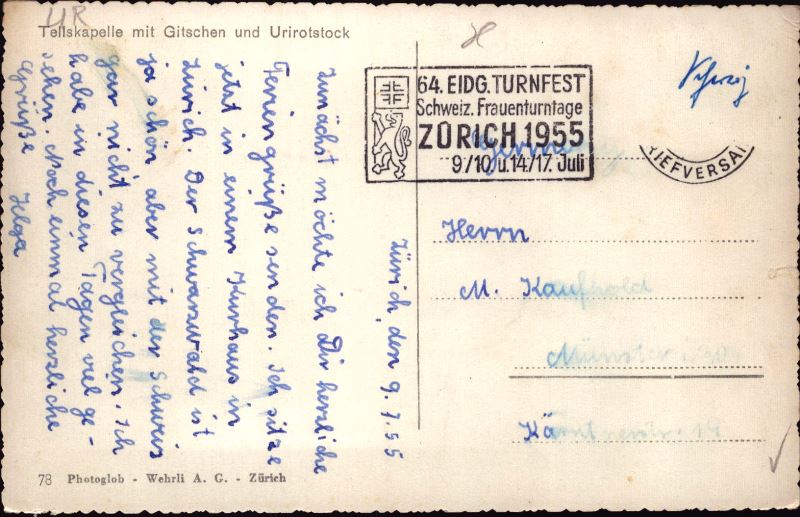 UR
Tellskapelle mit Gitschen und Urirotstock
Zürich, den 9.7.55
Zunächst möchte ich Dir herzliche
Feriengrüße senden. Ich sitze
jetzt in einem Kurhaus in
Zürich. Der Schwarzwald ist
ja schön aber mit der Schweiz
gar nicht zu vergleichen. Ich
habe in diesen Tagen viel ge-
sehen. Noch einmal herzliche
Grüße Helga
64. EIDG. TURNFEST
Schweiz. Frauenturntage
ZÜRICH 1955
9/10. u. 14/17. Juli
BRIEFVERSAND
Germany
Herrn
M. Kaufhold
Münster i.
Kärntnerstr. 14
78 Photoglob - Wehrli A. G. - Zürich